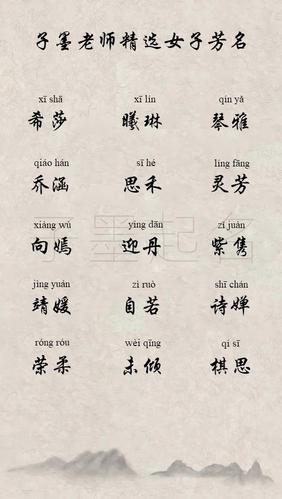 子墨老师精选女子芳名
xī shā xī lín qín yǎ
希莎 曦琳 琴雅
qiáo hán sī hé líng fāng
乔涵 思禾 灵芳
xiàng wú yíng dān zǐ juàn
向嫣 迎丹 紫隽
子墨起名
jìng yuán zì ruò shī chán
靖媛 自若 诗婵
róng róu wèi qīng qí sī
荣柔 未倾 棋思